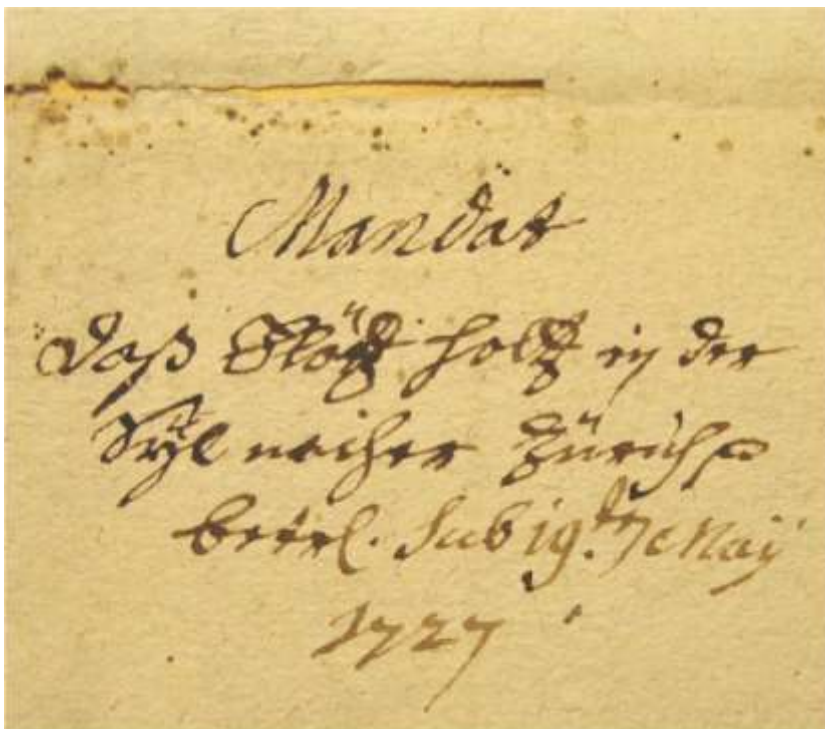 Mandat
daß Flötz holtz in der
Sÿl nacher Zürich
betrel. Sub 19.t Maÿ
1727